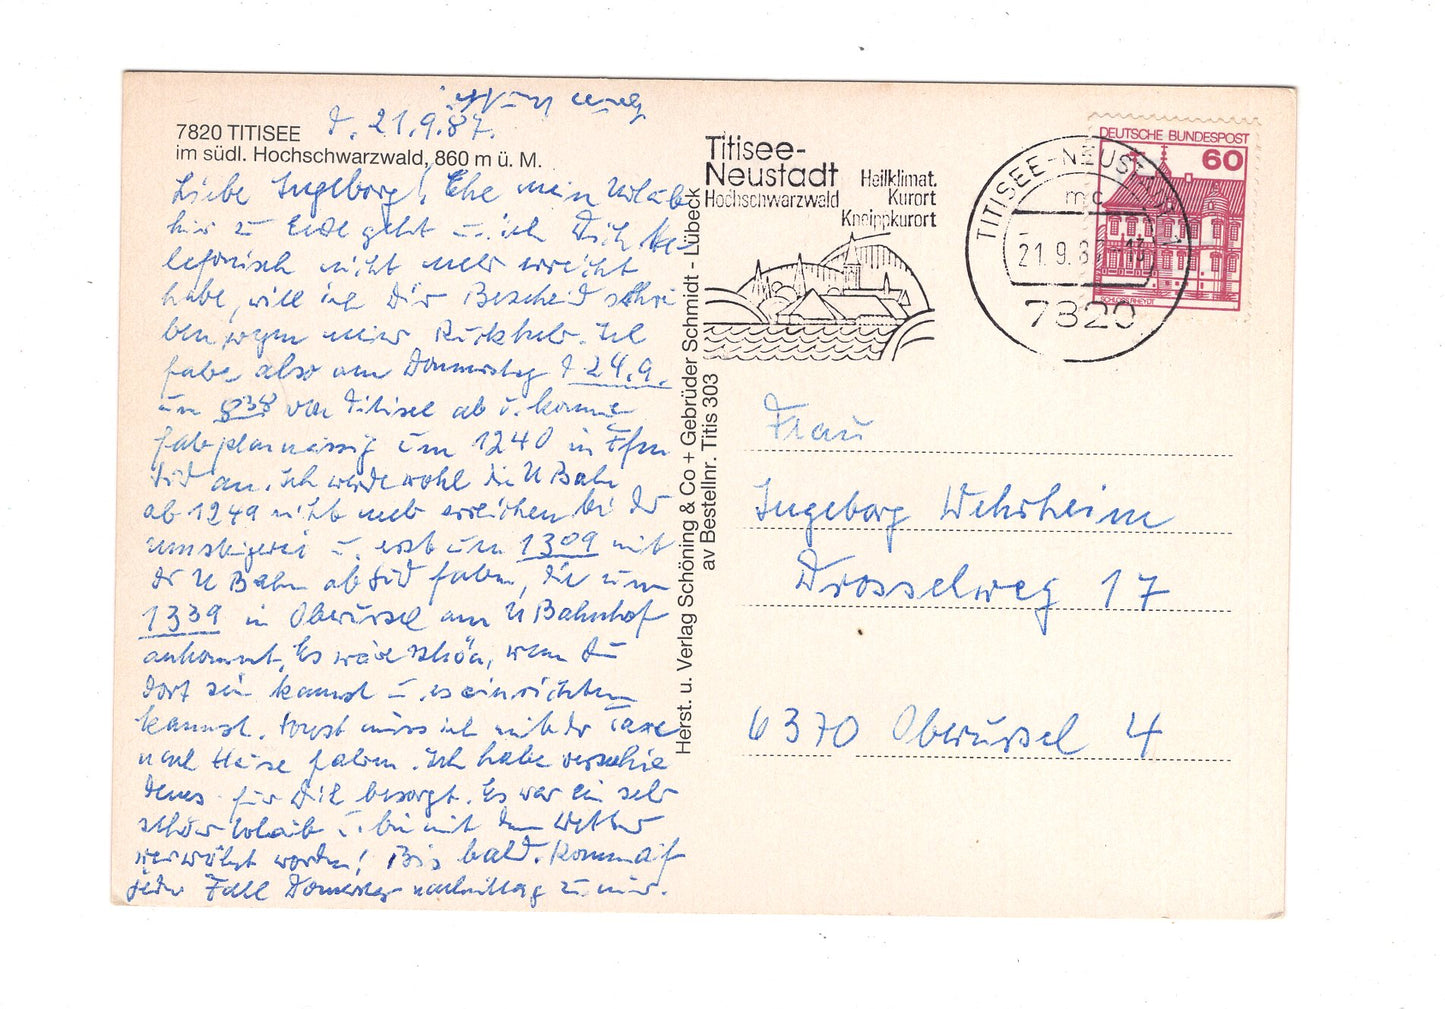 7820 TITISEE
im südl. Hochschwarzwald, 860 m ü. M.
d. 21.9.87.
Liebe Ingeborg! Ehe mein Urlaub
hier zu Ende geht u. ich Dich te-
lefonisch nicht mehr erreicht
habe, will ich Dir Bescheid schrei
ben wegen meiner Rückkehr. Ich
fahre also am Donnerstag d 24.9.
um 8 38 von Titisee ab u. komme
fahrplanmässig um 1240 in Ffm
Süd an. Ich werde wohl die U Bahn
ab 1249 nicht mehr erreichen bei der
Umsteigerei u. erst um 1309 mit
der U Bahn ab Süd fahren, die um
1339 in Oberursel am U Bahnhof
ankommt. Es wäre schön, wenn Du
dort sein kannst u. es einrichten
kannst. Sonst muss ich mit der Taxe
nach Hause fahren. Ich habe verschie
denes für Dich besorgt. Es war ein sehr
schöner Urlaub u. bin mit dem Wetter
verwöhnt worden! Bis bald. Komm auf
jeden Fall Donnerstag nachmittag zu mir.
Herst. u. Verlag Schöning & Co + Gebrüder Schmidt - Lübeck
av Bestellnr. Titis 303
Titisee-
Neustadt
Hochschwarzwald
Heilklimat.
Kurort
Kneippkurort
TITISEE-NEUSTADT 1
mc
21.9.87-13
7820
DEUTSCHE BUNDESPOST
60
SCHLOSS RHEYDT
Frau
Ingeborg Wehrheim
Drosselweg 17
6370 Oberursel 4